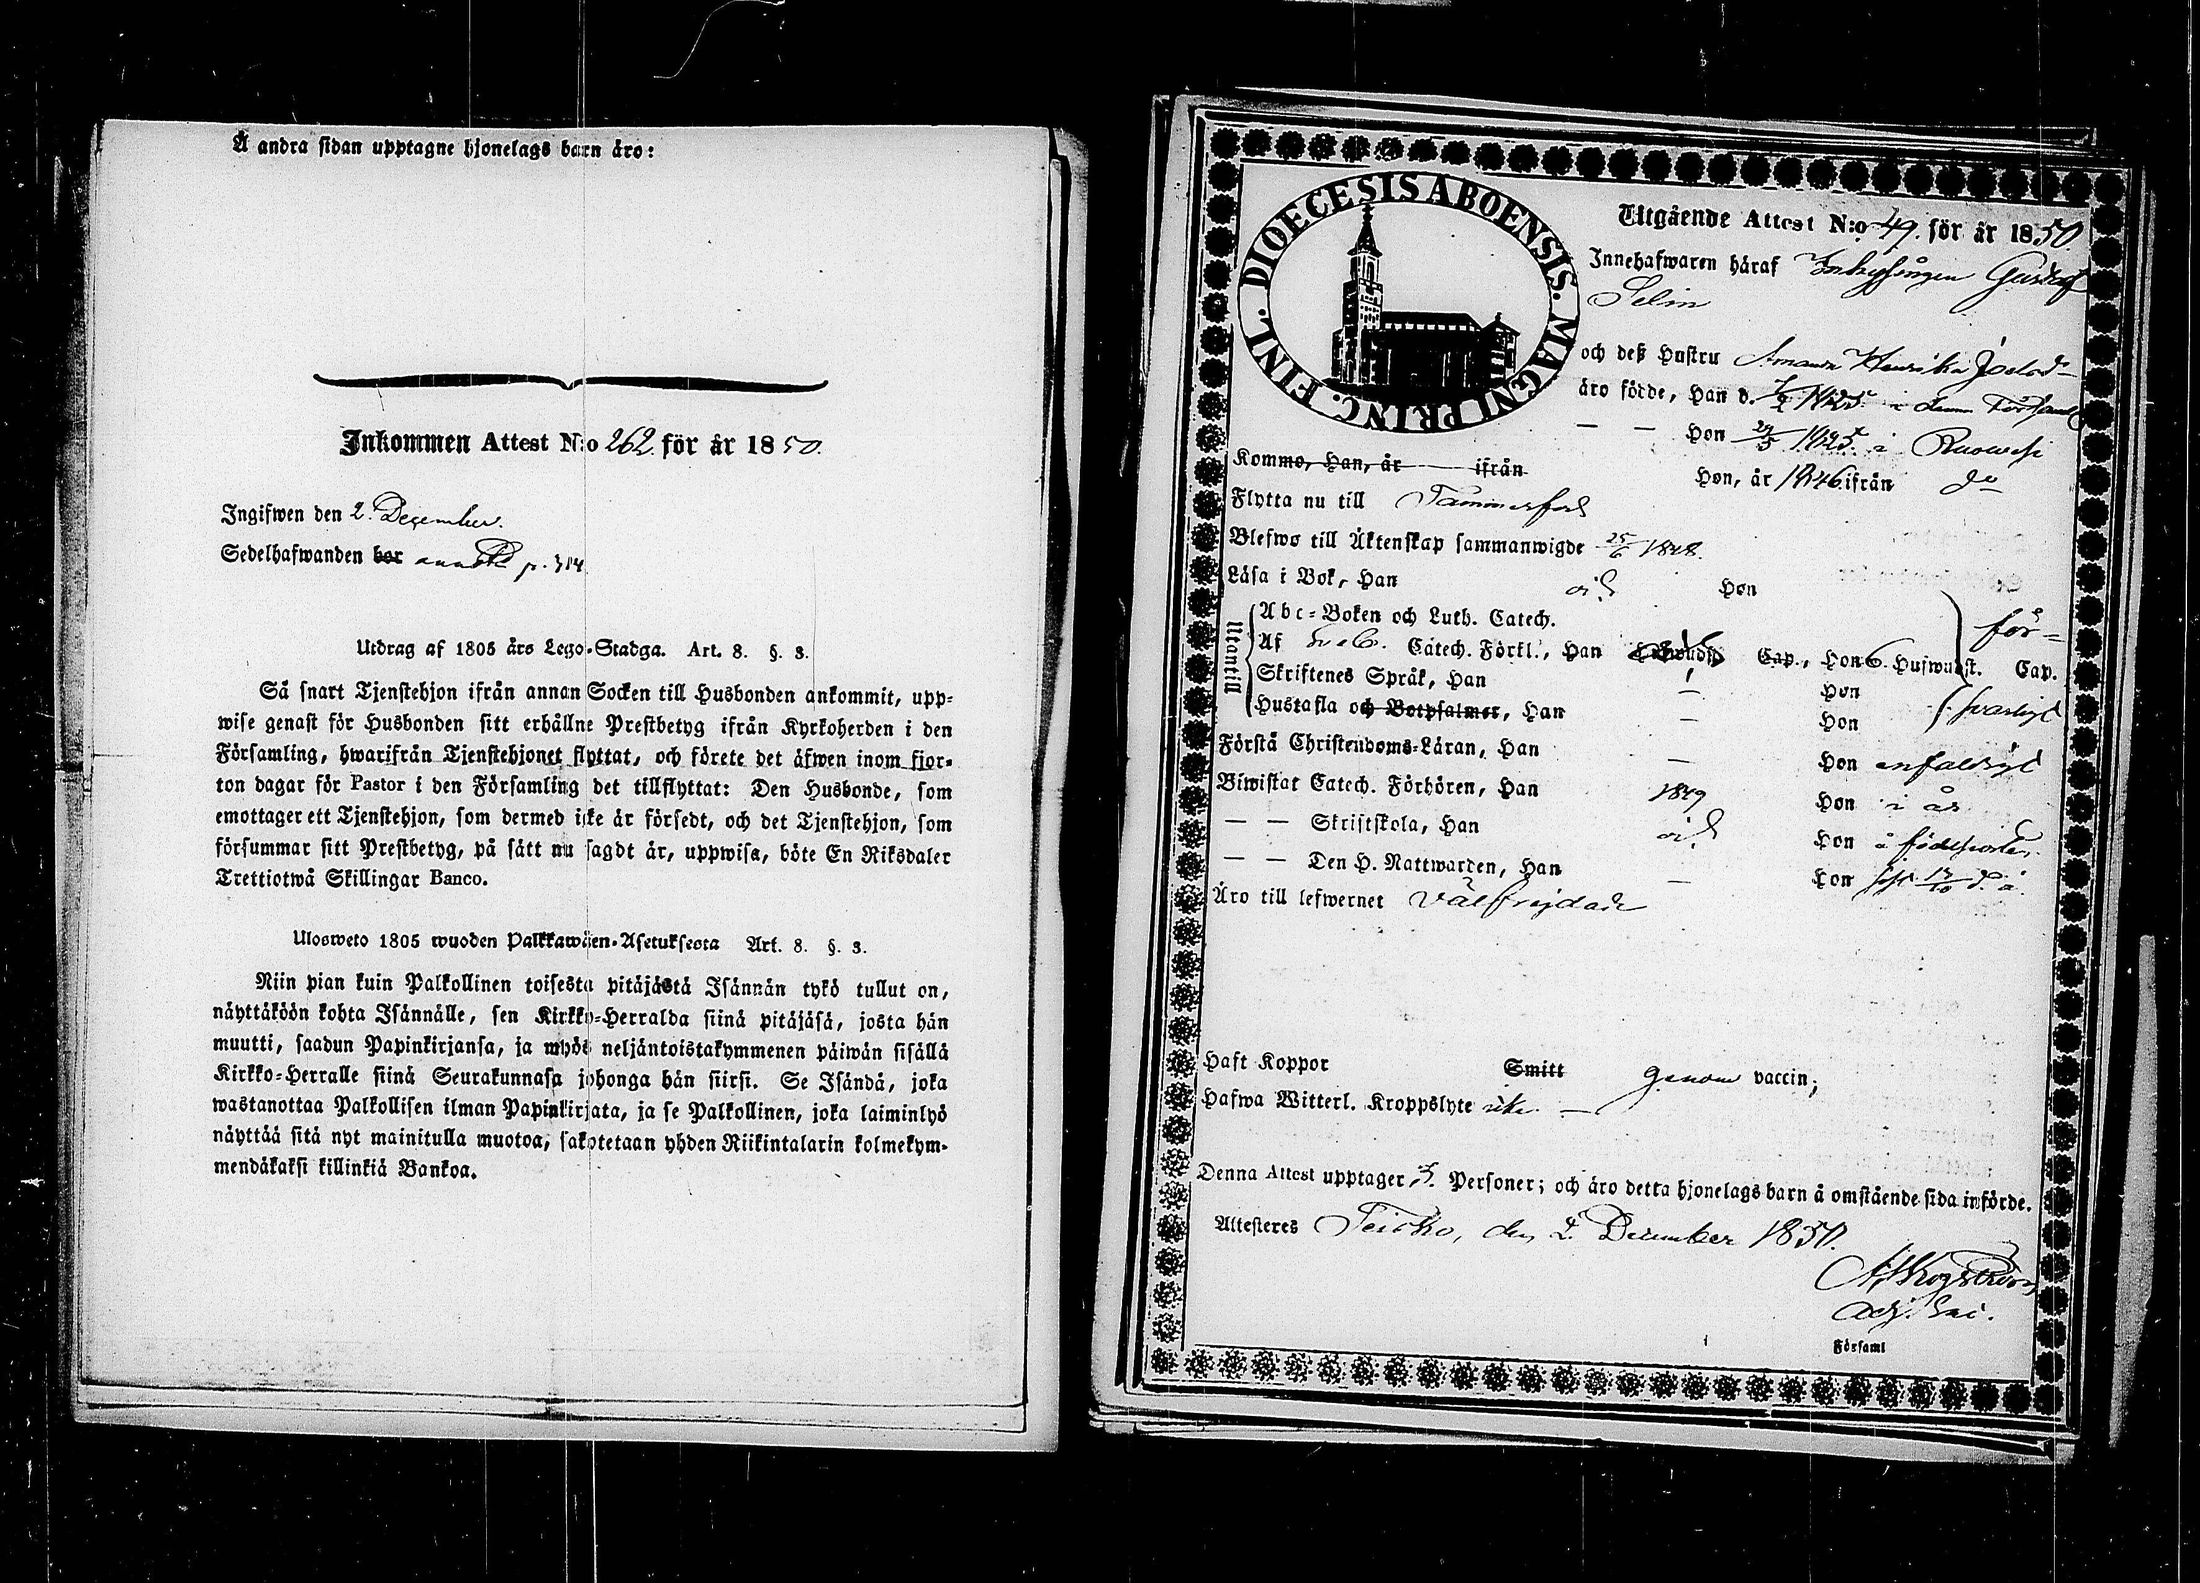 Å andra sidan upptagne hjonelags barn äro:
Inkommen Attest N:o 262. för år 1850.
Ingifwen den 2. December.
Sedelhafwanden bor p. 314
Utdrag af 1805 års Lego-Stadga. Art. 8. §. 3.
Så snart Tjenstehjon ifrån annan Socken till Husbonden ankommit, upp-
wise genast för Husbonden sitt erhållne Prestbetyg ifrån Kyrkoherden i den
Församling, hwarifrån Tjenstehjonet flyttat, och förete det äfwen inom fjor-
ton dagar för Pastor i den Församling det tillflyttat: Den Husbonde, som
emottager ett Tjenstehjon, som dermed icke är försedt, och det Tjenstehjon, som
försummar sitt Prestbetyg, på sätt nu sagdt är, uppwisa, böte En Riksdaler
Trettiotwå Skillingar Banco.
Ulosweto 1805 wuoden Palkkawäen-Asetuksesta Art. 8. §. 3.
Niin pian kuin Palkollinen toisesta pitäjästä Isännän tykö tullut on,
näyttäköön kohta Isännälle, sen Kirkko-Herralda siinä pitäjäsä, josta hän
muutti, saadun Papinkirjansa, ja myös neljäntoistakymmenen päiwän sisällä
Kirkko-Herralle siinä Seurakunnasa johonga hän siirsi. Se Isändä, joka
wastanottaa Palkollisen ilman Papinkirjata, ja se Palkollinen, joka laiminlyö
näyttää sitä nyt mainitulla muotoa, sakotetaan yhden Riikintalarin kolmekym-
mendäkaksi killinkiä Bankoa.
DIOECESIS ABOENSIS. MAGNI PRINC. FINL.
Utgående Attest N:o 49. för år 1850
Innehafwaren häraf Inhysingen Gustaf
Selin
och deß Hustru Amanda Henrika Josefsd:r
äro födde, Han d. 7/2 1825 i denna Församl.
— — Hon 29/5 1825. i Ruowesi
Kommo, Han, år ifrån Hon, år 1846 ifrån d:o
Flytta nu till Tammerfors
Blefwo till Äktenskap sammanwigde 25/6 1848.
Läsa i Bok, Han Hon
Utantill
Abc-Boken och Luth. Catech. för=
Af Catech. Förkl., Han Cap., Hon 6. Hufwudst. Cap.
Skriftenes Språk, Han — Hon
Hustafla och Botpsalmer, Han — Hon svarligt
Förstå Christendoms-Läran, Han — Hon enfaldigt
Biwistat Catech. Förhören, Han 1849 Hon i år
— — Skriftskola, Han Hon å födelseorten.
— — Den H. Nattwarden, Han — Hon sist 13/10 d. å.
Äro till lefwernet välfrejdade
Haft Koppor Smitt genom vaccin;
Hafwa Witterl. Kroppslyte icke. —
Denna Attest upptager 3. Personer; och äro detta hjonelags barn å omstående sida införde.
Attesteres Teisko, den 2. December 1850.
Adj. Sac.
Församl